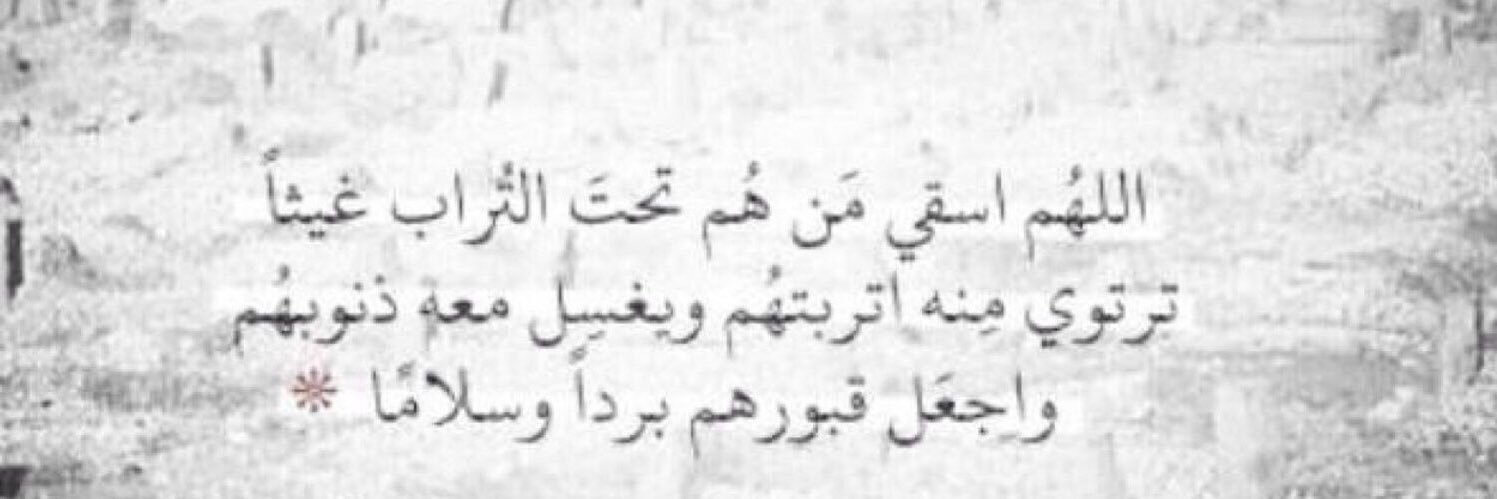 اللهُم اسقي مَن هُم تحتَ التُراب غيثاً
ترتوي مِنه اتربتهُم ويغسِل معه ذنوبهُم
واجعَل قبورهم برداً وسلامًا